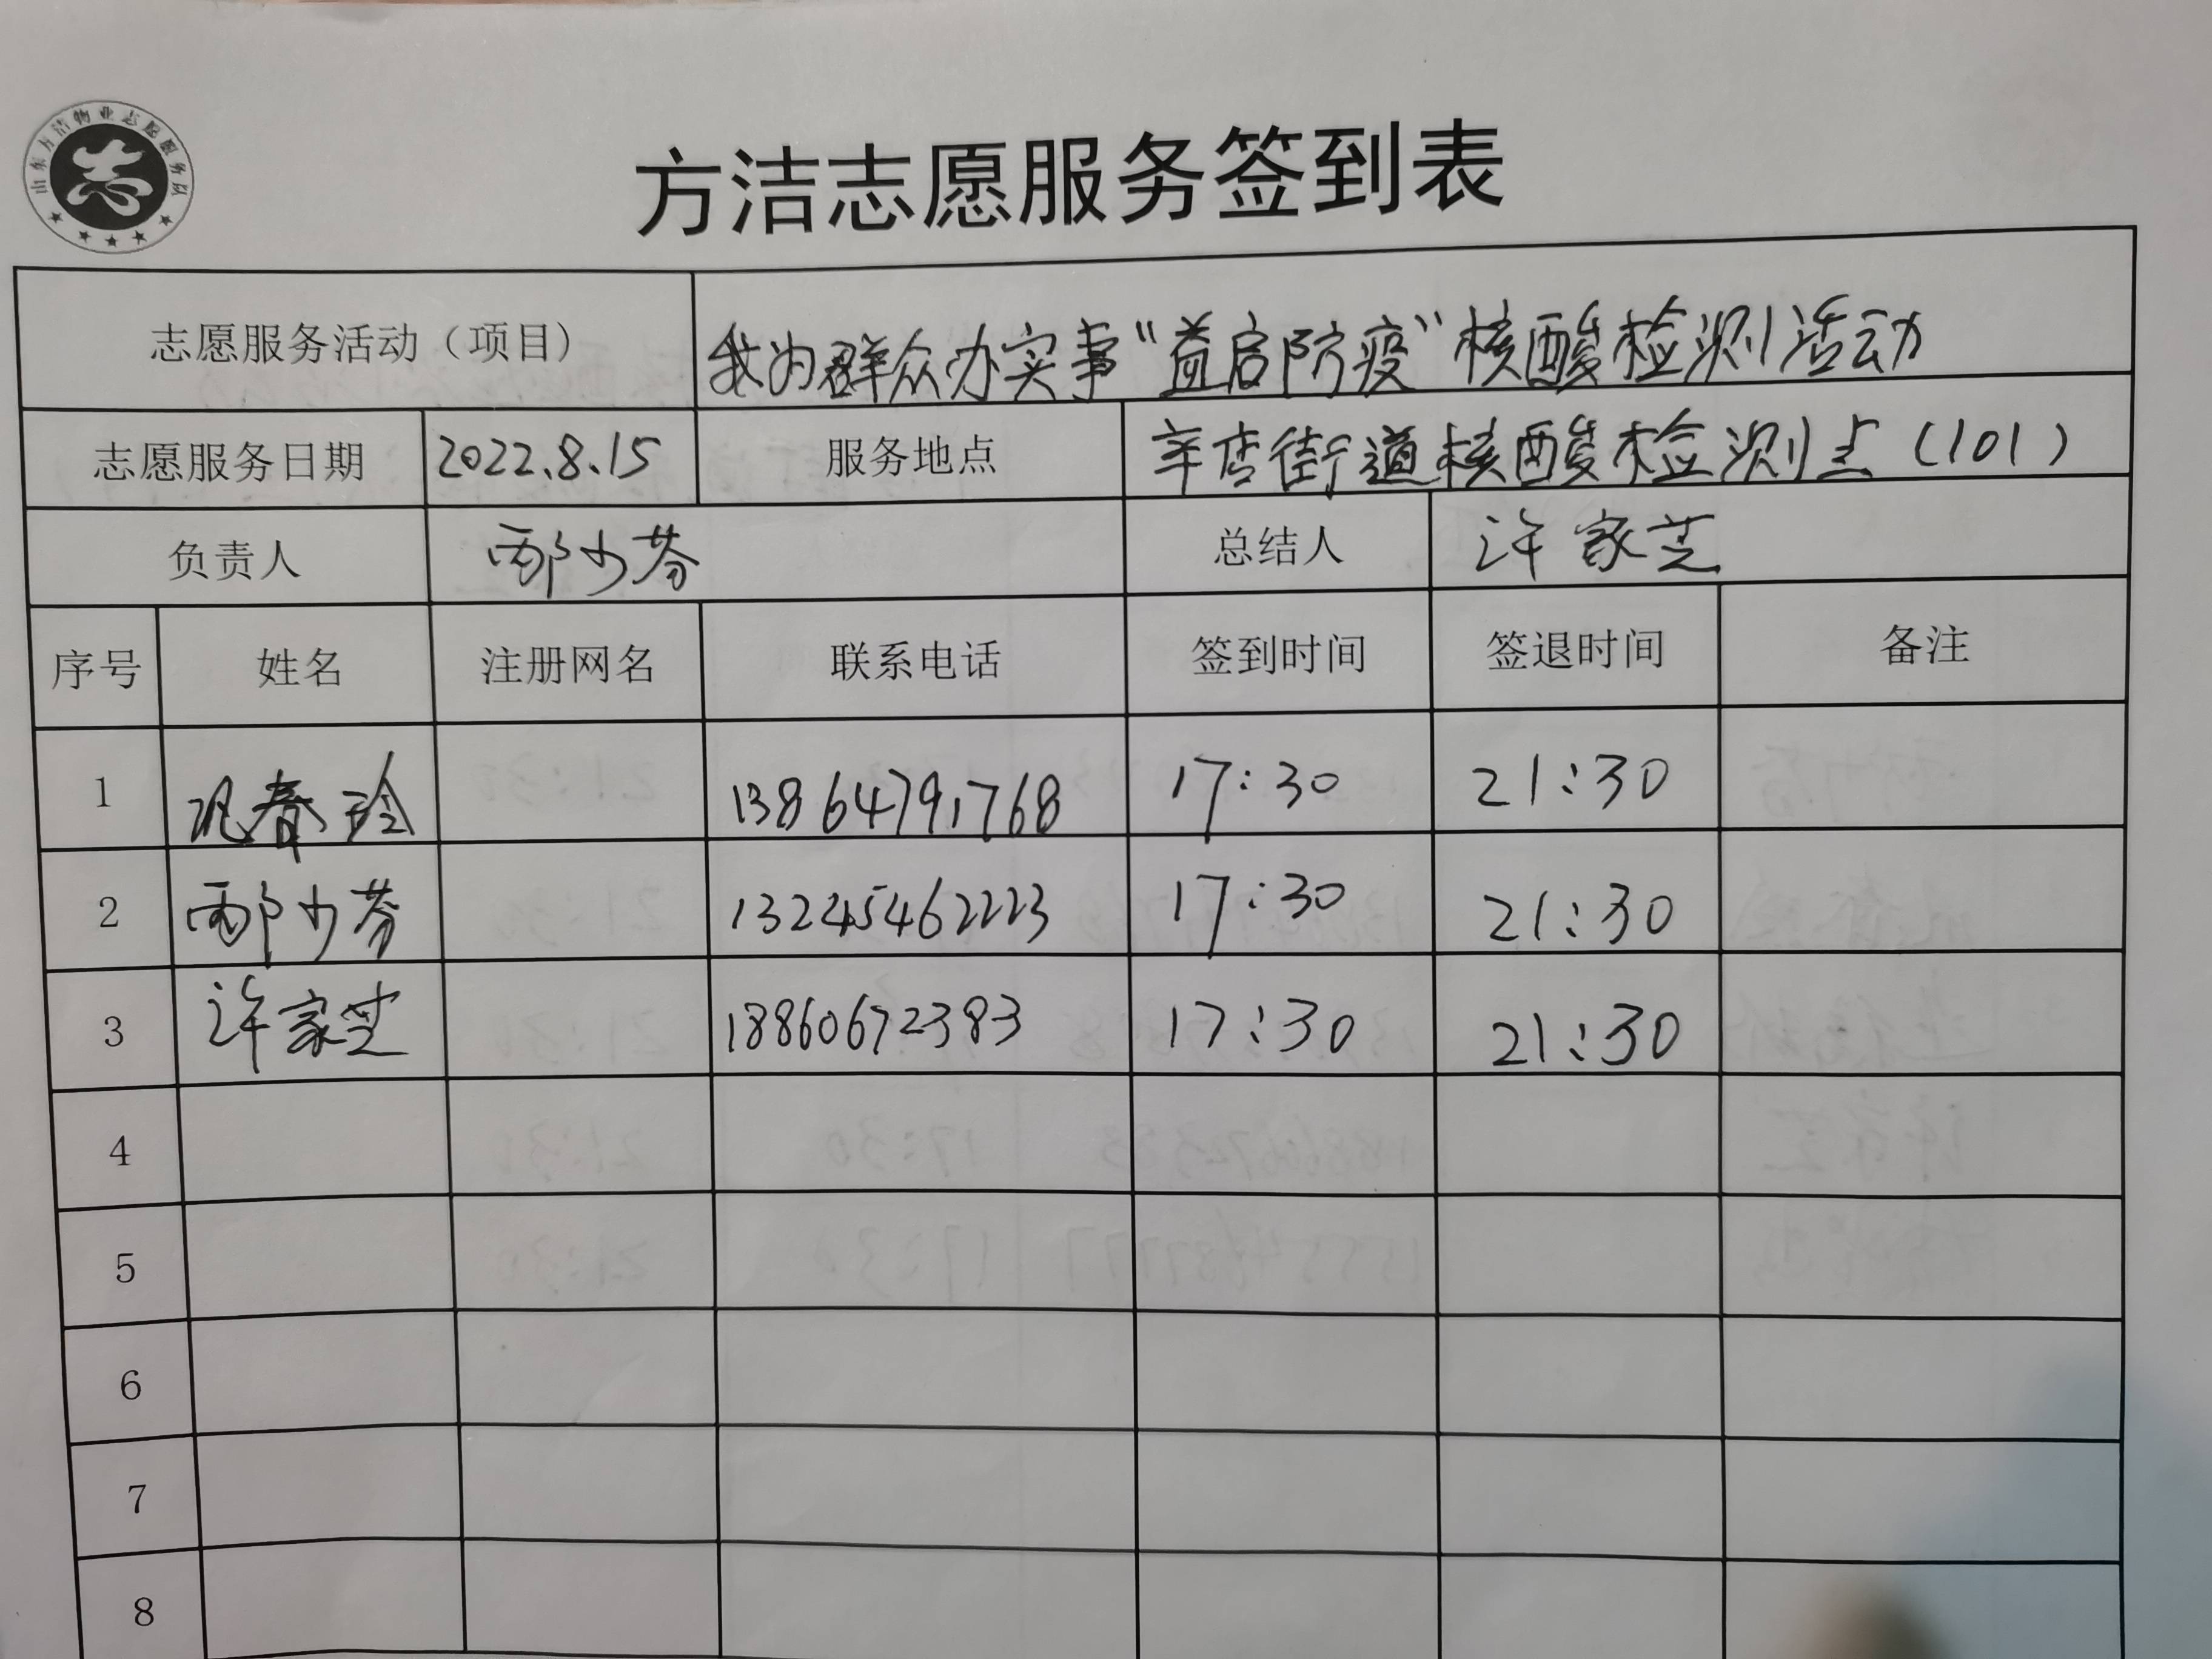 山东方洁物业志愿服务队
方洁志愿服务签到表
志愿服务活动（项目） 我为群众办实事“益启防疫”核酸检测活动
志愿服务日期 2022.8.15 服务地点 辛店街道核酸检测点（101）
负责人 邴少芬 总结人 许家芝
序号 姓名 注册网名 联系电话 签到时间 签退时间 备注
1 春玲 13864791768 17:30 21:30
2 邴少芬 13245462223 17:30 21:30
3 许家芝 18860672383 17:30 21:30
4
5
6
7
8